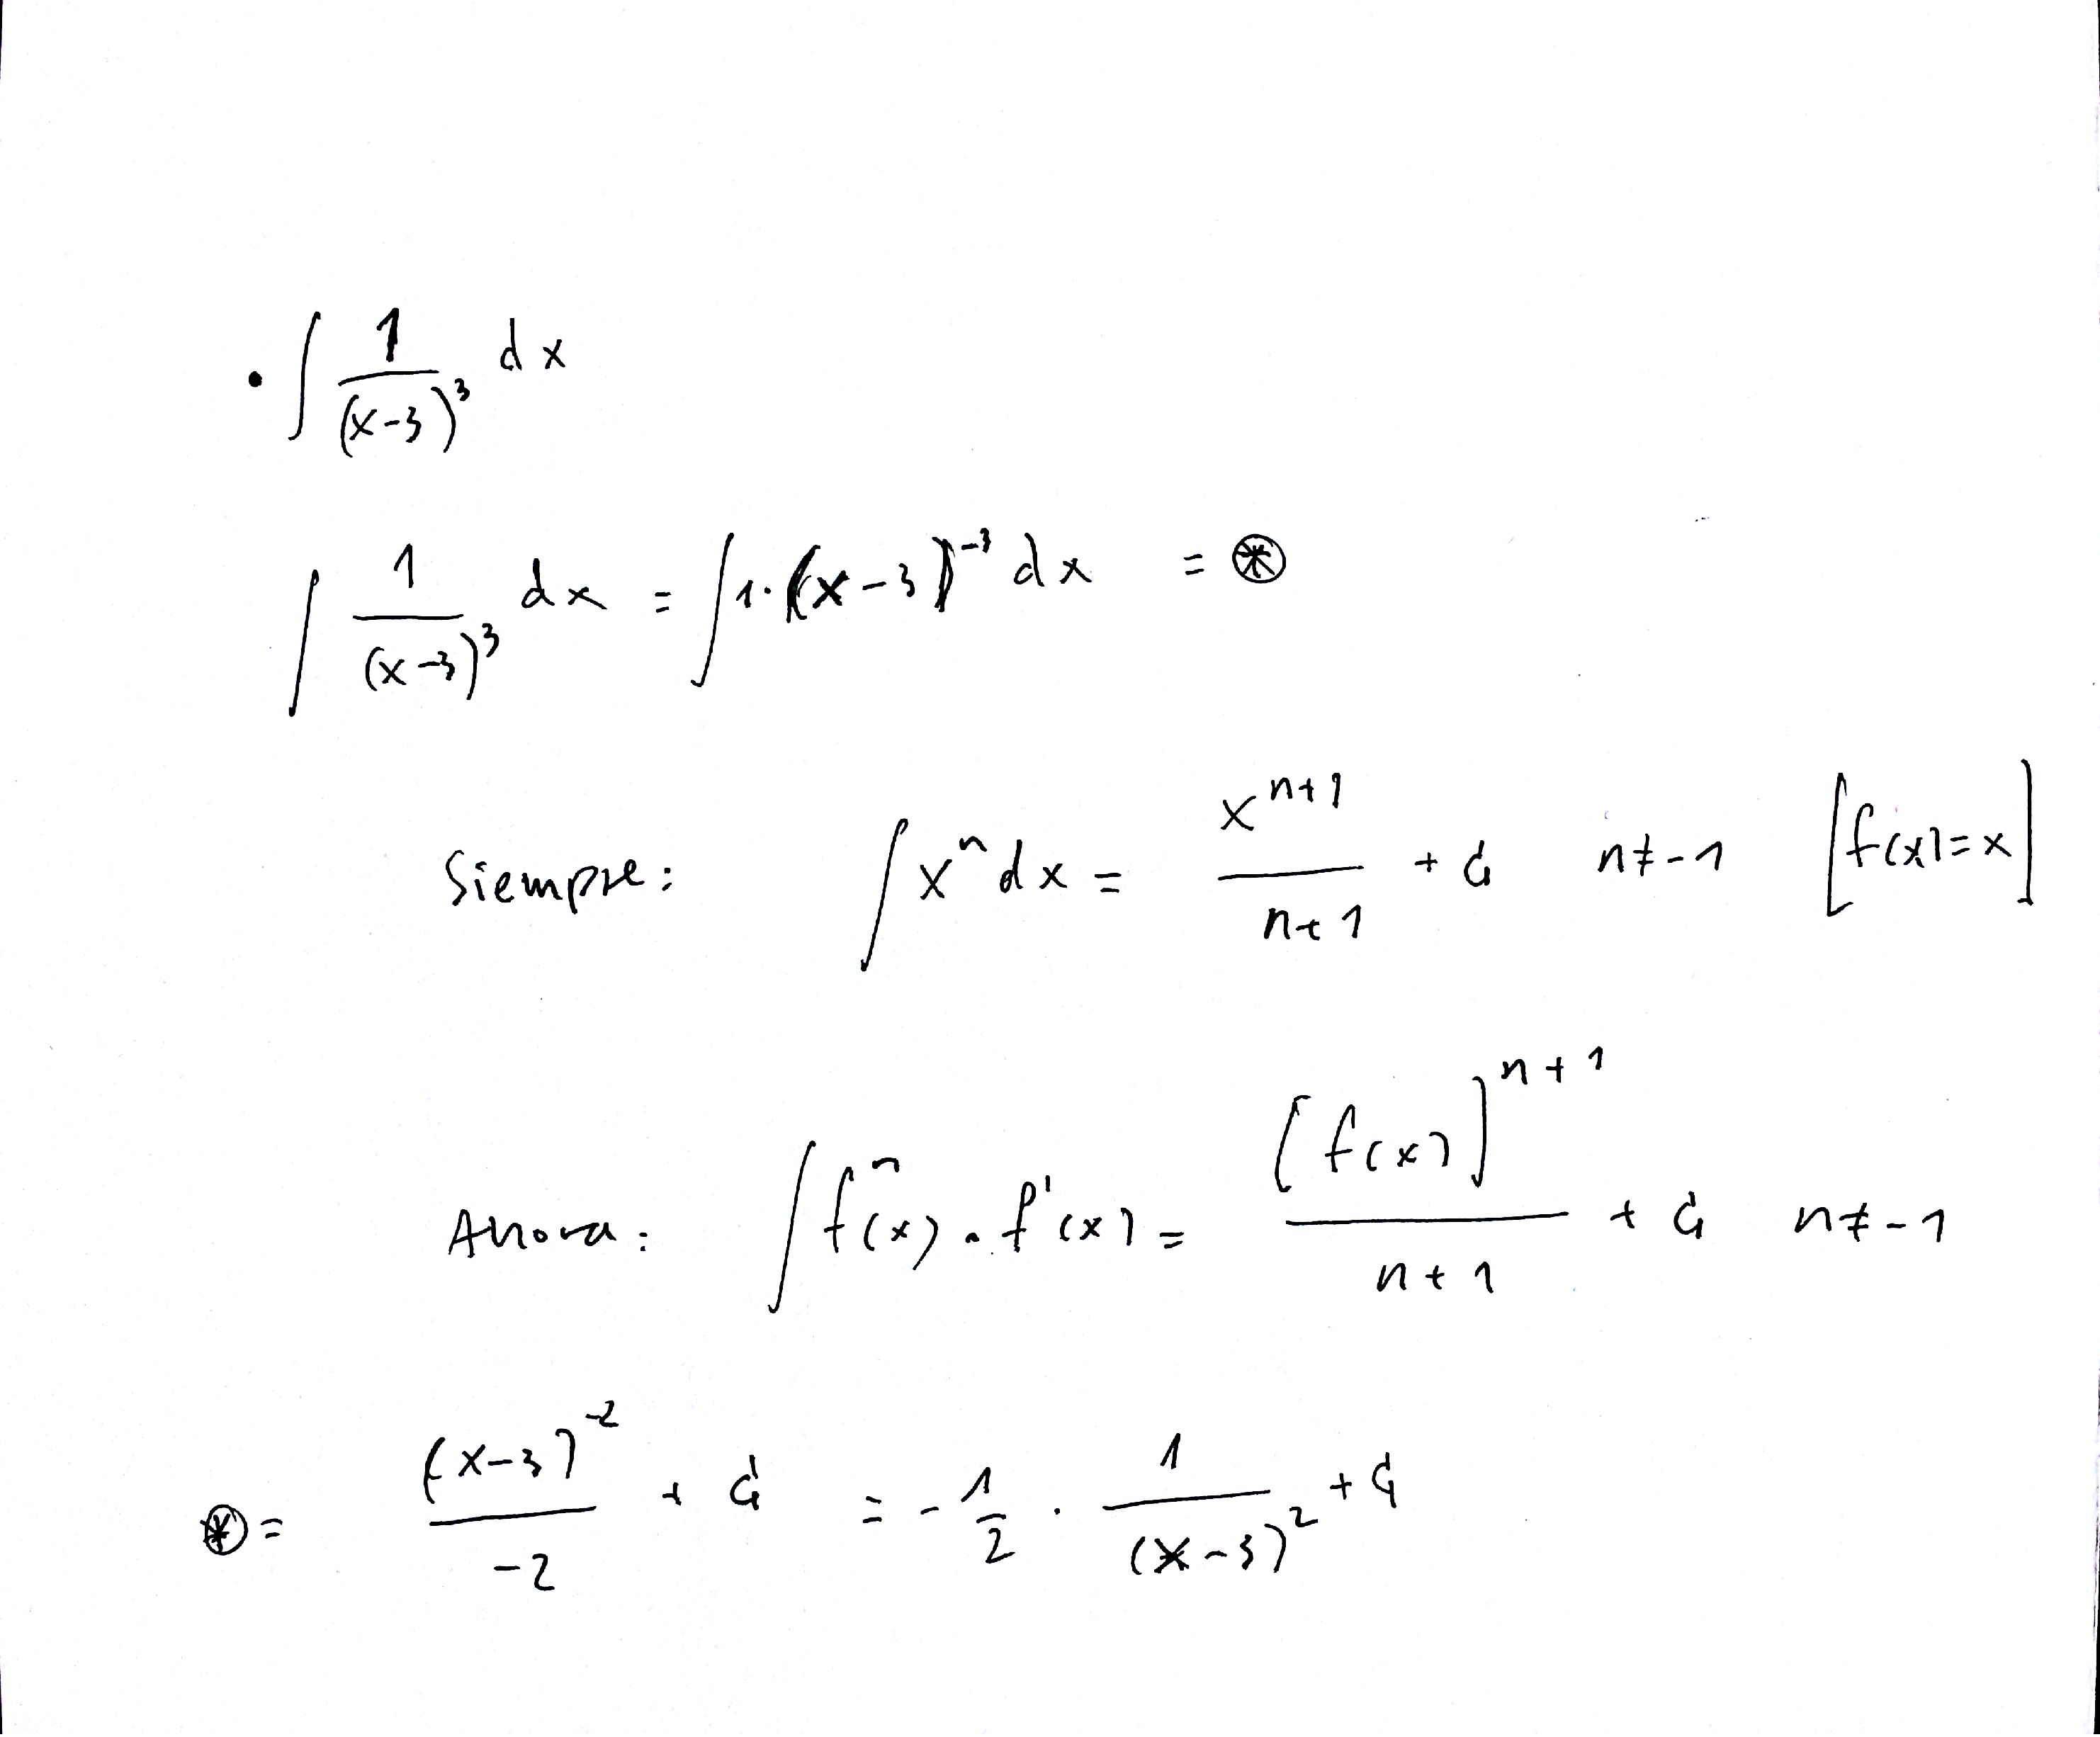 • ∫ 1/(x-3)³ dx
∫ 1/(x-3)³ dx = ∫ 1·(x-3)⁻³ dx = ⊛
Siempre: ∫ xⁿ dx = xⁿ⁺¹/(n+1) + C n≠-1 [f(x)=x]
Ahora: ∫ fⁿ(x) · f'(x) = [f(x)]ⁿ⁺¹/(n+1) + C n≠-1
⊛ = (x-3)⁻²/-2 + C = -1/2 · 1/(x-3)² + C